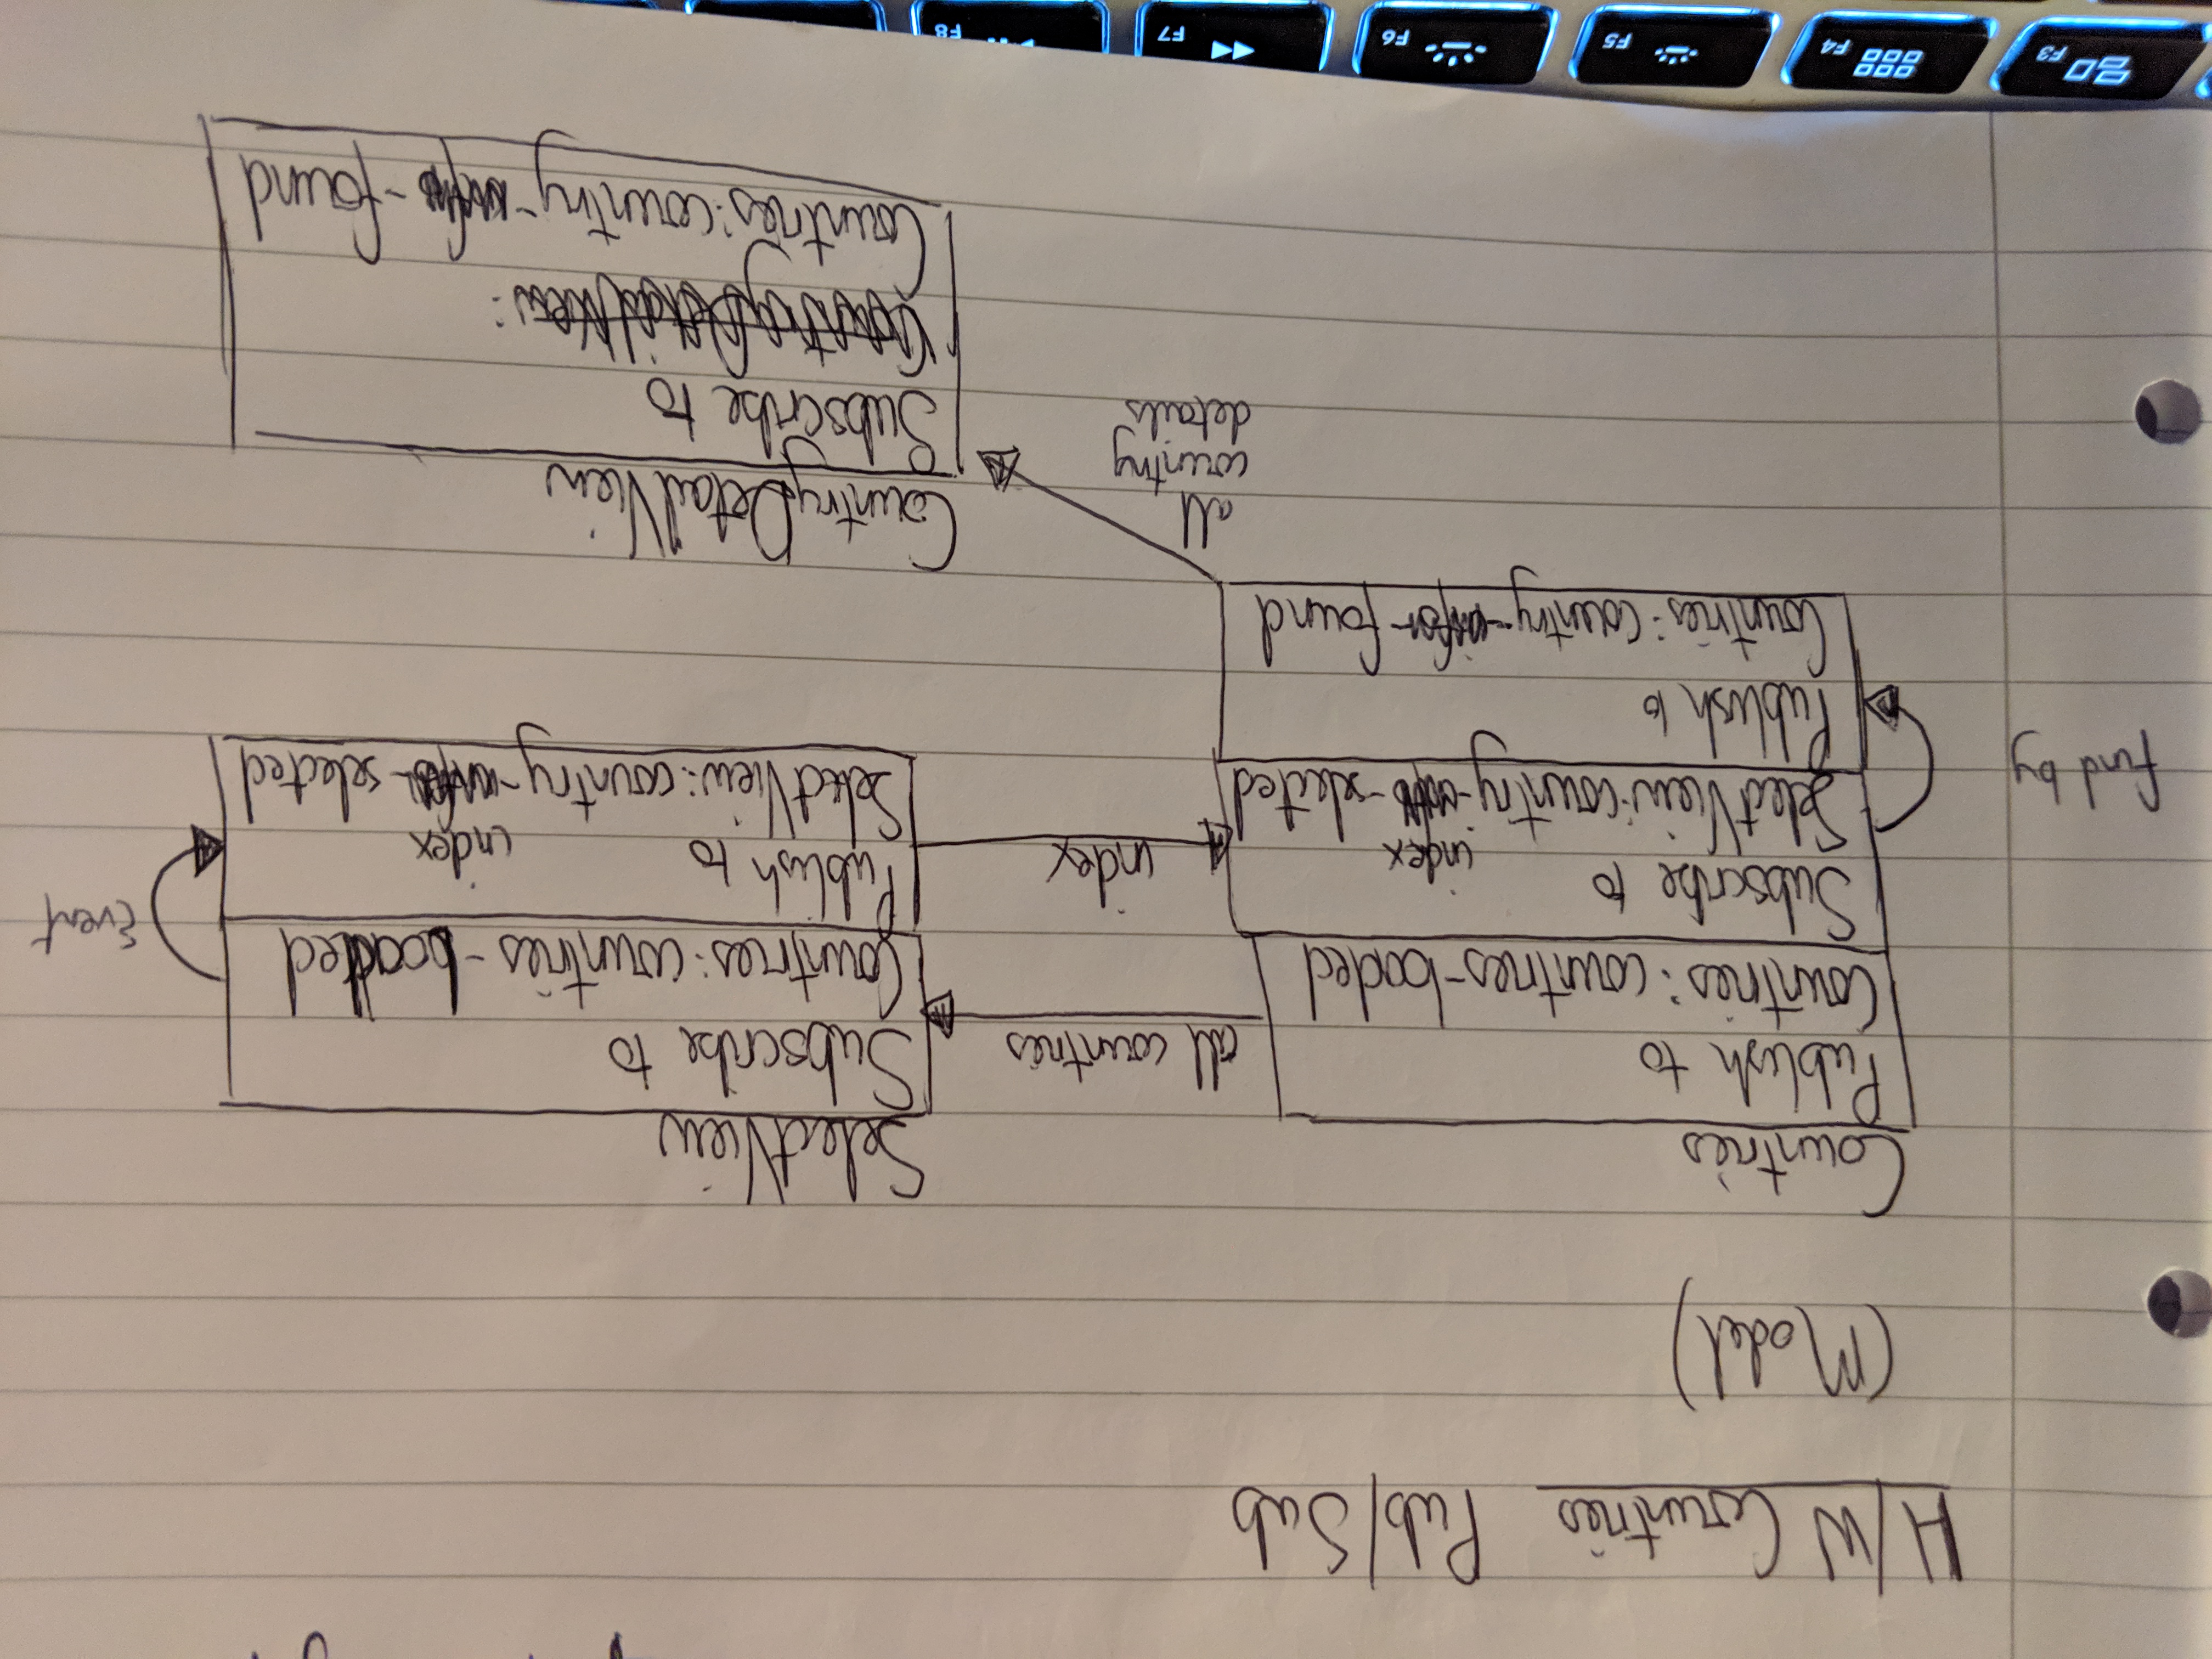 H/W Countries Pub/Sub
(Model)
Countries
Publish to
Countries: countries-loaded
Subscribe to
index
SelectView:country- -selected
Publish to
Countries: country- found
find by
all countries
index
SelectView
Subscribe to
Countries: countries-loaded
Publish to
index
SelectView: country- - selected
Event
all
country
details
CountryDetailView
Subscribe to
CountryDetailView:
Countries:country- -found
F3
F4
F5
F6
F7
F8